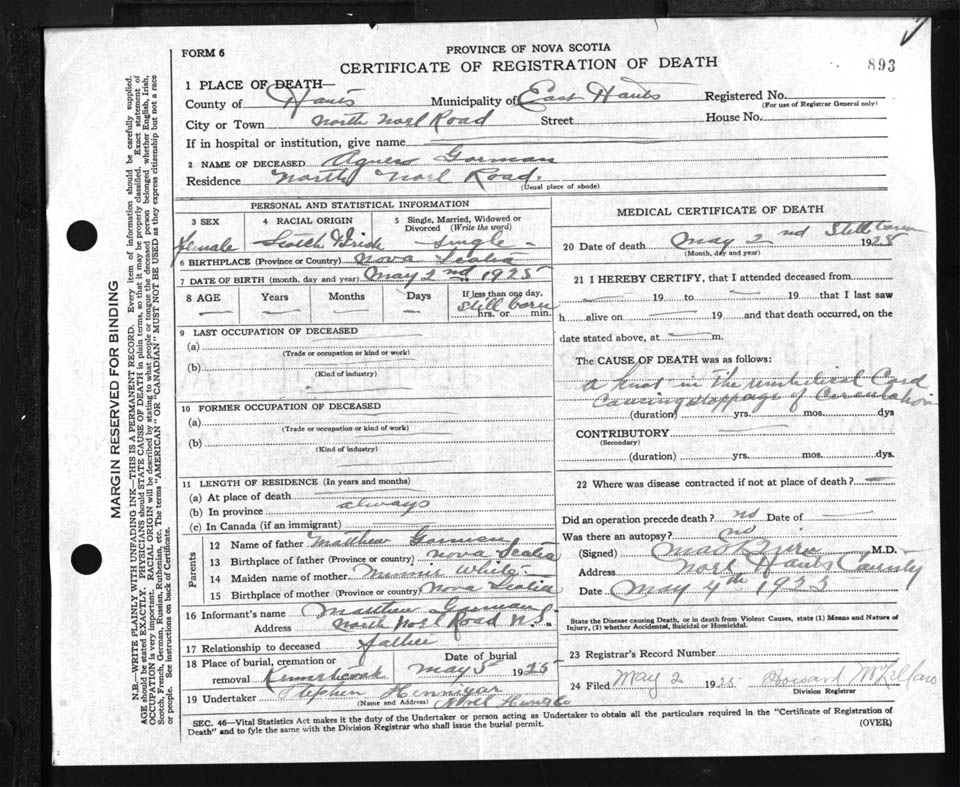 FORM 6
PROVINCE OF NOVA SCOTIA
CERTIFICATE OF REGISTRATION OF DEATH
893
1 PLACE OF DEATH—
County of Hants Municipality of East Hants Registered No.
(For use of Registrar General only)
City or Town North Noel Road Street House No.
If in hospital or institution, give name
2 NAME OF DECEASED Agness Gorman
Residence North Noel Road.
(Usual place of abode)
PERSONAL AND STATISTICAL INFORMATION
3 SEX 4 RACIAL ORIGIN 5 Single, Married, Widowed or Divorced (Write the word)
female Scotch Irish Single
6 BIRTHPLACE (Province or Country) Nova Scotia
7 DATE OF BIRTH (month, day and year) May 2nd 1925
8 AGE Years Months Days If less than one day,
Still born
hrs. or min.
9 LAST OCCUPATION OF DECEASED
(a)
(Trade or occupation or kind or work)
(b)
(Kind of industry)
10 FORMER OCCUPATION OF DECEASED
(a)
(Trade or occupation or kind of work)
(b)
(Kind of industry)
11 LENGTH OF RESIDENCE (In years and months)
(a) At place of death
(b) In province always
(c) In Canada (if an immigrant)
Parents
12 Name of father Matthew Gorman
13 Birthplace of father (Province or country) Nova Scotia
14 Maiden name of mother Minnie White
15 Birthplace of mother (Province or country) Nova Scotia
16 Informant's name Matthew Gorman
Address North Noel Road N.S.
17 Relationship to deceased Father
18 Place of burial, cremation or Date of burial
removal May 5 1925
19 Undertaker Stephen Hennigar
(Name and Address) Noel Hants Co
MEDICAL CERTIFICATE OF DEATH
20 Date of death May 2nd Still born 1925
(Month, day and year)
21 I HEREBY CERTIFY, that I attended deceased from
19 to 19 that I last saw
h alive on 19 and that death occurred, on the
date stated above, at m.
The CAUSE OF DEATH was as follows:
a knot in The umbilical Cord
Causing stoppage of Circulation
(duration) yrs. mos. dys
CONTRIBUTORY
(Secondary)
(duration) yrs. mos. dys.
22 Where was disease contracted if not at place of death?
Did an operation precede death? no Date of
Was there an autopsy? no
(Signed) M.D.
Address Noel Hants County
Date May 4th 1925
State the Disease causing Death, or in death from Violent Causes, state (1) Means and Nature of
Injury, (2) whether Accidental, Suicidal or Homicidal.
23 Registrar's Record Number
24 Filed May 2 1925 Howard
Division Registrar
SEC. 46—Vital Statistics Act makes it the duty of the Undertaker or person acting as Undertaker to obtain all the particulars required in the "Certificate of Registration of
Death" and to fyle the same with the Division Registrar who shall issue the burial permit.
(OVER)
MARGIN RESERVED FOR BINDING
N.B.—WRITE PLAINLY WITH UNFADING INK—THIS IS A PERMANENT RECORD. Every item of information should be carefully supplied.
AGE should be stated EXACTLY. PHYSICIANS should STATE CAUSE OF DEATH in plain terms, so that it may be properly classified. Exact statement of
OCCUPATION is very important. RACIAL ORIGIN will be described by stating to what people or tongue the deceased person belonged whether English, Irish,
Scotch, French, German, Russian, Ruthenian, etc. The terms "AMERICAN" OR "CANADIAN" MUST NOT BE USED as they express citizenship but not a race
or people. See instructions on back of Certificate.